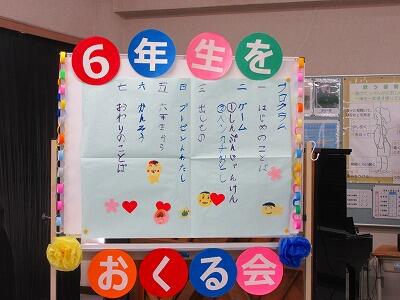 6年生を
プログラム
一 はじめのことば
二 ゲーム
①しんぶんじゃんけん
②ハンカチおとし
三 出しもの
四 プレゼントわたし
五 六年生から
六 かんそう
七 おわりのことば
おくる会